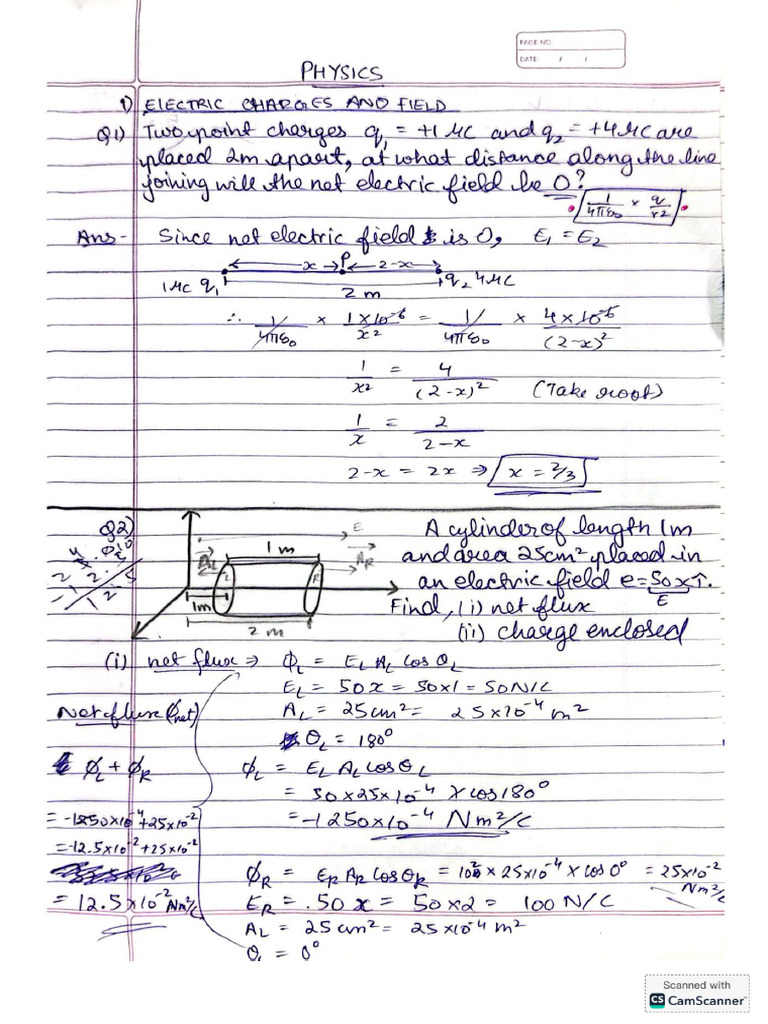 PAGE NO.
DATE / /
PHYSICS
1) ELECTRIC CHARGES AND FIELD
Q1) Two point charges q₁ = +1 μC and q₂ = +4 μC are
placed 2m apart, at what distance along the line
joining will the net electric field be 0?
1/4πε₀ × q/r2
Ans - Since net electric field is 0, E₁ = E₂
x P 2-x
1μC q₁ q₂ 4μC
2 m
∴ 1/4πε₀ × 1×10⁻⁶/x² = 1/4πε₀ × 4×10⁻⁶/(2-x)²
1/x² = 4/(2-x)² (Take root)
1/x = 2/2-x
2-x = 2x ⇒ x = 2/3
Q2) A cylinder of length 1m
and area 25cm² placed in
an electric field e = 50x î.
E
Find, (i) net flux
(ii) charge enclosed
E
1 m
AL
AR
L
R
1m
2 m
(i) net flux ⇒ ϕL = EL AL cos θL
EL = 50x = 50×1 = 50N/C
Net flux (ϕnet) AL = 25cm² = 25×10⁻⁴ m²
θL = 180°
ϕL + ϕR ϕL = EL AL cos θL
= 50×25×10⁻⁴ × cos 180°
= -1250×10⁻⁴ + 25×10⁻² = -1250×10⁻⁴ Nm²/C
= -12.5×10⁻² + 25×10⁻²
ϕR = ER AR cos θR = 10² × 25×10⁻⁴ × cos 0° = 25×10⁻² Nm²/C
= 12.5×10⁻² Nm²/C ER = 50 x = 50×2 = 100 N/C
AL = 25 cm² = 25×10⁻⁴ m²
θL = 0°
Scanned with
CS CamScanner